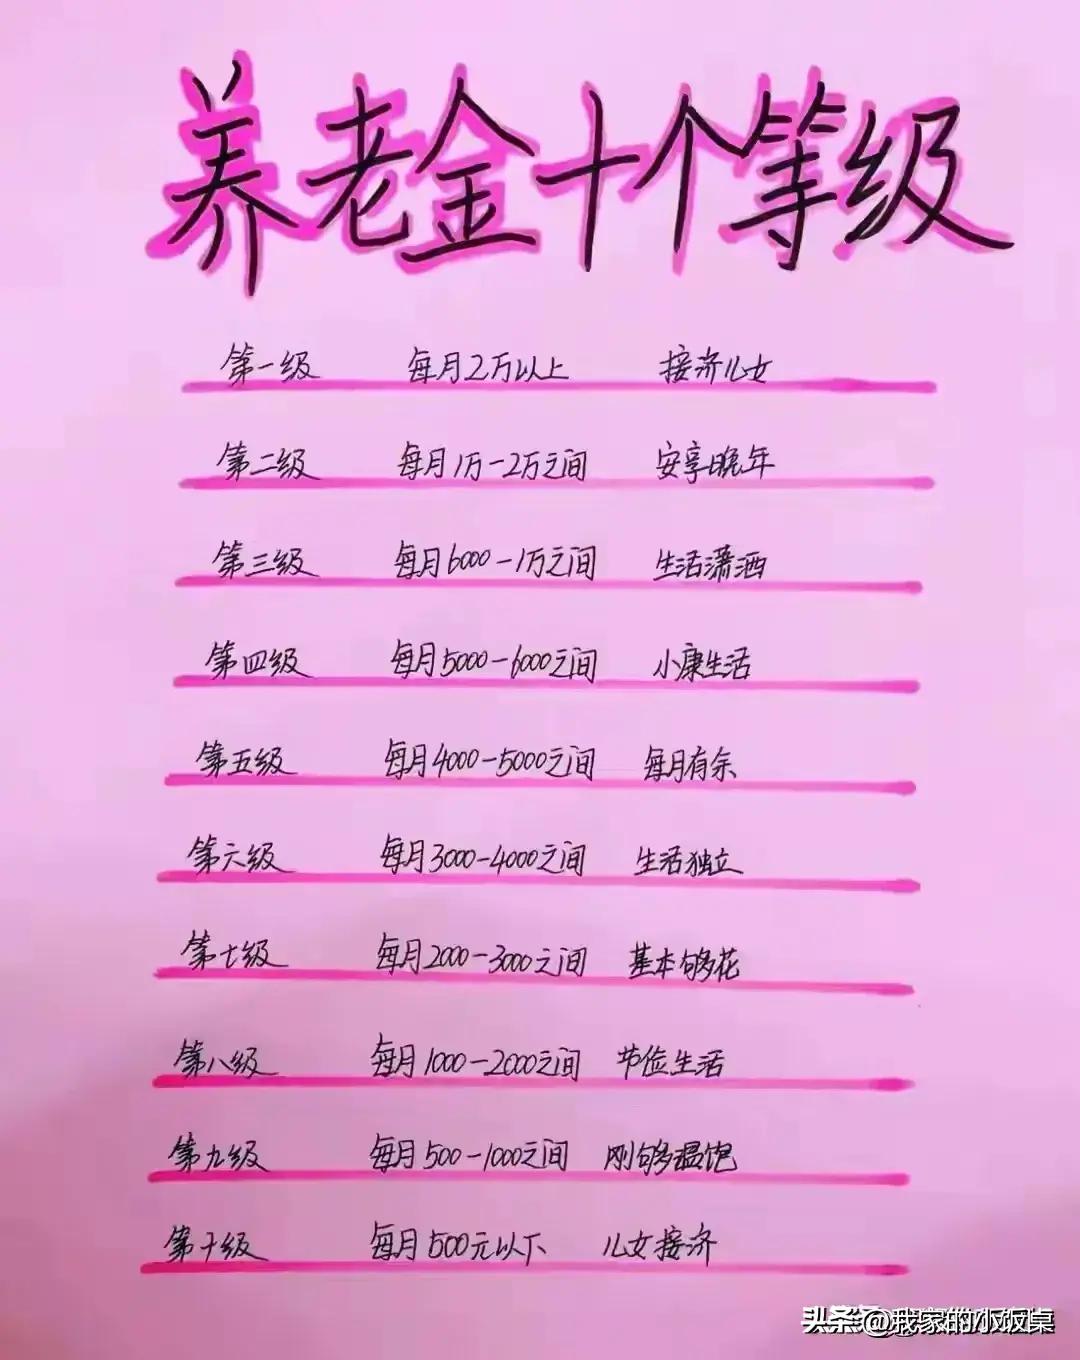 养老金十个等级
第一级 每月2万以上 接济儿女
第二级 每月1万-2万之间 安享晚年
第三级 每月6000-1万之间 生活潇洒
第四级 每月5000-6000之间 小康生活
第五级 每月4000-5000之间 每月有余
第六级 每月3000-4000之间 生活独立
第七级 每月2000-3000之间 基本够花
第八级 每月1000-2000之间 节俭生活
第九级 每月500-1000之间 刚够温饱
第十级 每月500元以下 儿女接济
头条 @我家的小饭桌